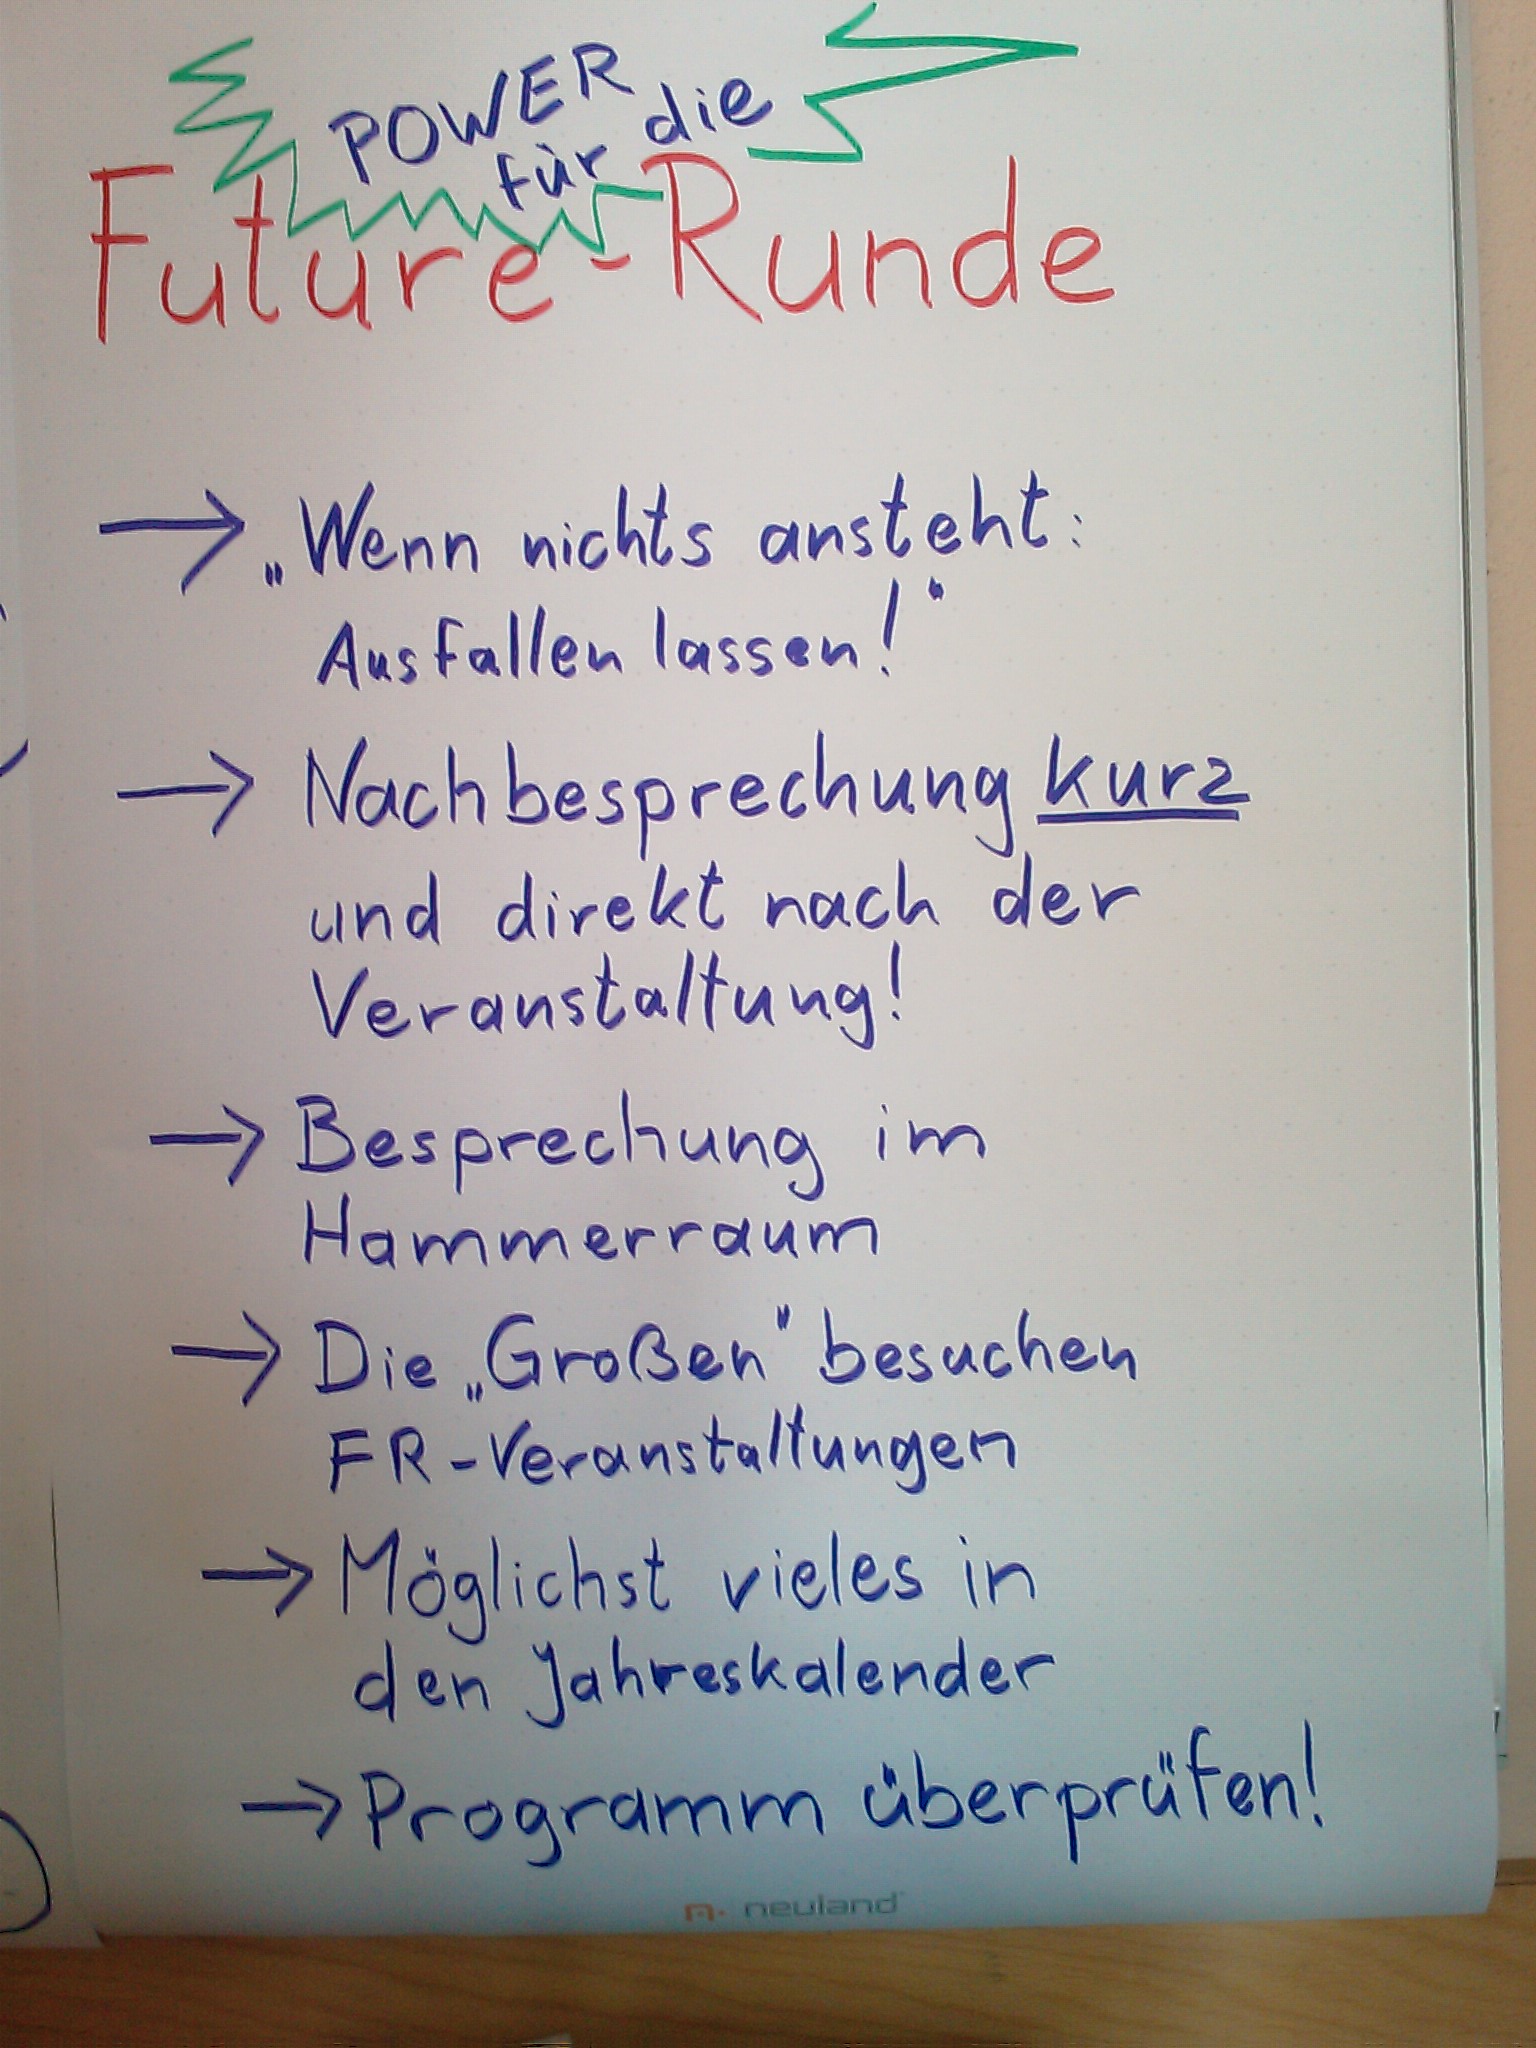 POWER
für die
Future-Runde
→ „Wenn nichts ansteht:
Ausfallen lassen!“
→ Nachbesprechung kurz
und direkt nach der
Veranstaltung!
→ Besprechung im
Hammerraum
→ Die „Großen“ besuchen
FR-Veranstaltungen
→ Möglichst vieles in
den Jahreskalender
→ Programm überprüfen!
neuland